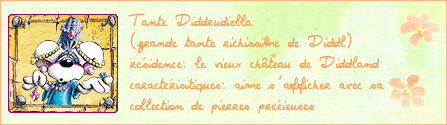 Tante Diddeudiella
(grande tante richissime de Diddl)
résidence: le vieux château de Diddland
caractérisitiques: aime s'afficher avec sa
collection de pierres précieuses